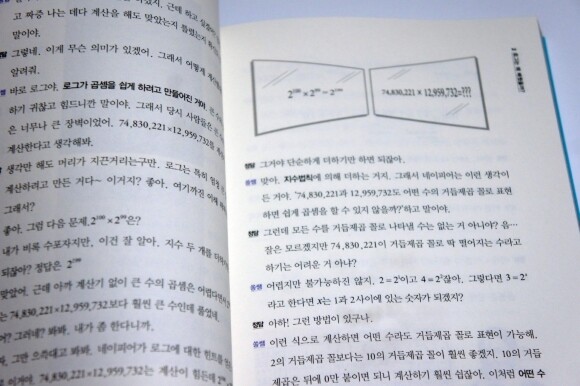 고 짜증 나는 데다 계산을 해도 맞았는지 틀렸는지
말이야.
정말 그렇네. 이게 무슨 의미가 있겠어. 그래서 어떻게
알려줘.
쏠쌤 바로 로그야. 로그가 곱셈을 쉽게 하려고 만들어진 거야.
하기 귀찮고 힘드니깐 말이야. 그래서 당시 사람들은
은 너무나 큰 장벽이었어. 74,830,221×12,959,732를
계산한다고 생각해봐.
생각만 해도 머리가 지끈거리는구만. 로그는 특히
계산하려고 만든 거다~ 이거지? 좋아. 여기까진
그래서?
좋아. 그럼 다음 문제. 은?
내가 비록 수포자지만, 이건 잘 알아. 지수 두 개를
되잖아? 정답은
맞았어. 근데 아까 계산기 없이 큰 수의 곱셈은 어렵다면서
는 74,830,221×12,959,732보다 훨씬 큰 수인데 풀었네.
어? 그러네? 봐봐. 내가 좀 한다니까.
그만 으스대고 봐봐. 네이피어가 로그에 대한 힌트를
74,830,221×12,959,732는 계산이 힘든데
74,830,221 × 12,959,732=???
정말 그거야 단순하게 더하기만 하면 되잖아.
쏠쌤 맞아. 지수법칙에 의해 더하는 거지. 그래서 네이피어는 이런 생각이
든 거야. '74,830,221과 12,959,732도 어떤 수의 거듭제곱 꼴로 표현
하면 쉽게 곱셈을 할 수 있지 않을까?'하고 말이야.
정말 그런데 모든 수를 거듭제곱 꼴로 나타낼 수는 없는 거 아니야? 음…
잘은 모르겠지만 74,830,221이 거듭제곱 꼴로 딱 떨어지는 수라고
하기는 어려운 거 아냐?
쏠쌤 어렵지만 불가능하진 않지. 2 = 2¹이고 4 = 2²잖아. 그렇다면 3 = 2ˣ
라고 한다면 x는 1과 2사이에 있는 숫자가 되겠지?
정말 아하! 그런 방법이 있구나.
쏠쌤 이런 식으로 계산하면 어떤 수라도 거듭제곱 꼴로 표현이 가능해.
2의 거듭제곱 꼴보다는 10의 거듭제곱 꼴이 훨씬 좋겠지. 10의 거듭
제곱은 뒤에 0만 붙이면 되니 계산하기 훨씬 쉽잖아. 이처럼 어떤 수